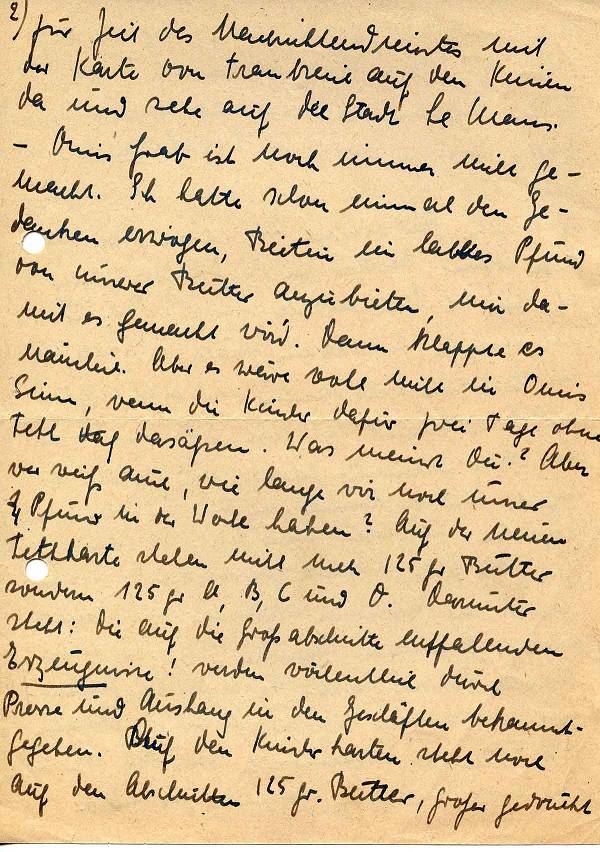 2) zur Zeit des Nachrichtendienstes mit
der Karte von Frankreich auf den Knien
da und sehe auf die Stadt Le Mans.
– Omis Grab ist noch immer nicht ge-
macht. Ich hatte schon einmal den Ge-
danken erwogen, ein halbes Pfund
von unserer Butter anzubieten, nur da-
mit es gemacht wird. Dann klappte es
nämlich. Aber es wäre wohl nicht in Omis
Sinn, wenn die Kinder dafür zwei Tage ohne
Fett dasäßen. Was meinst Du? Aber
wer weiß auch, wie lange wir noch unser
¼ Pfund in der Woche haben? Auf der neuen
Fettkarte stehen nicht mehr 125 gr Butter
sondern 125 gr A, B, C und D. Darunter
steht: die auf die Großabschnitte entfallenden
Erzeugnisse! werden wöchentlich durch
Presse und Aushang in den Geschäften bekannt-
gegeben. Auf den Kinderkarten steht noch
auf den Abschnitten 125 gr. Butter, groß gedruckt